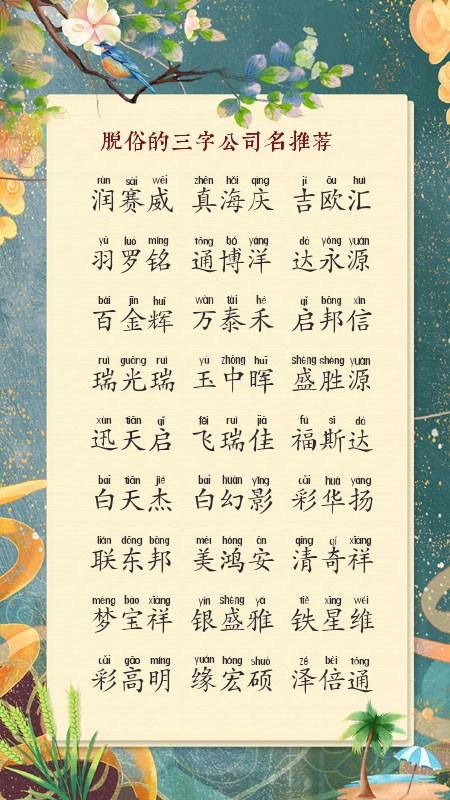 脱俗的三字公司名推荐
rùn sài wēi zhēn hǎi qìng jí ōu huì
润赛威 真海庆 吉欧汇
yǔ luó míng tōng bó yáng dá yǒng yuán
羽罗铭 通博洋 达永源
bǎi jīn huī wàn tài hé qǐ bāng xìn
百金辉 万泰禾 启邦信
ruì guāng ruì yù zhōng huī shèng shèng yuán
瑞光瑞 玉中晖 盛胜源
xùn tiān qǐ fēi ruì jiā fú sī dá
迅天启 飞瑞佳 福斯达
bái tiān jié bái huàn yǐng cǎi huá yáng
白天杰 白幻影 彩华扬
lián dōng bāng měi hóng ān qīng qí xiáng
联东邦 美鸿安 清奇祥
mèng bǎo xiáng yín shèng yǎ tiě xīng wéi
梦宝祥 银盛雅 铁星维
cǎi gāo míng yuán hóng shuò zé bèi tōng
彩高明 缘宏硕 泽倍通